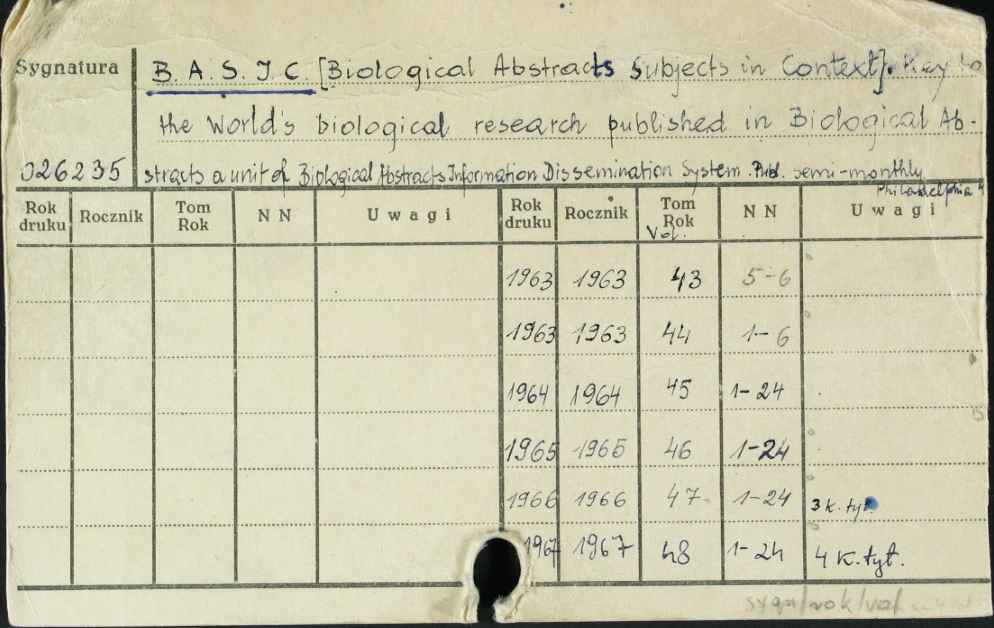 Sygnatura B. A. S. I. C. [Biological Abstracts Subjects in Context]. Key to
the World's biological research published in Biological Ab-
026235 stracts a unit of Biological Abstracts Information Dissemination System. Publ. semi-monthly
Philadelphia 4
Rok druku Rocznik Tom Rok NN Uwagi Rok druku Rocznik Tom Rok Vol. NN Uwagi
1963 1963 43 5-6
1963 1963 44 1-6
1964 1964 45 1-24
1965 1965 46 1-24
1966 1966 47 1-24 3 k. tyt.
1967 1967 48 1-24 4 k. tyt.
sygn/rok/vol